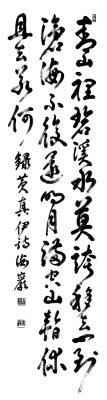 青山裡碧溪水莫誇易移去一到
滄海不復還明月滿空山暫休
且去若何 錄黃真伊詩海巖